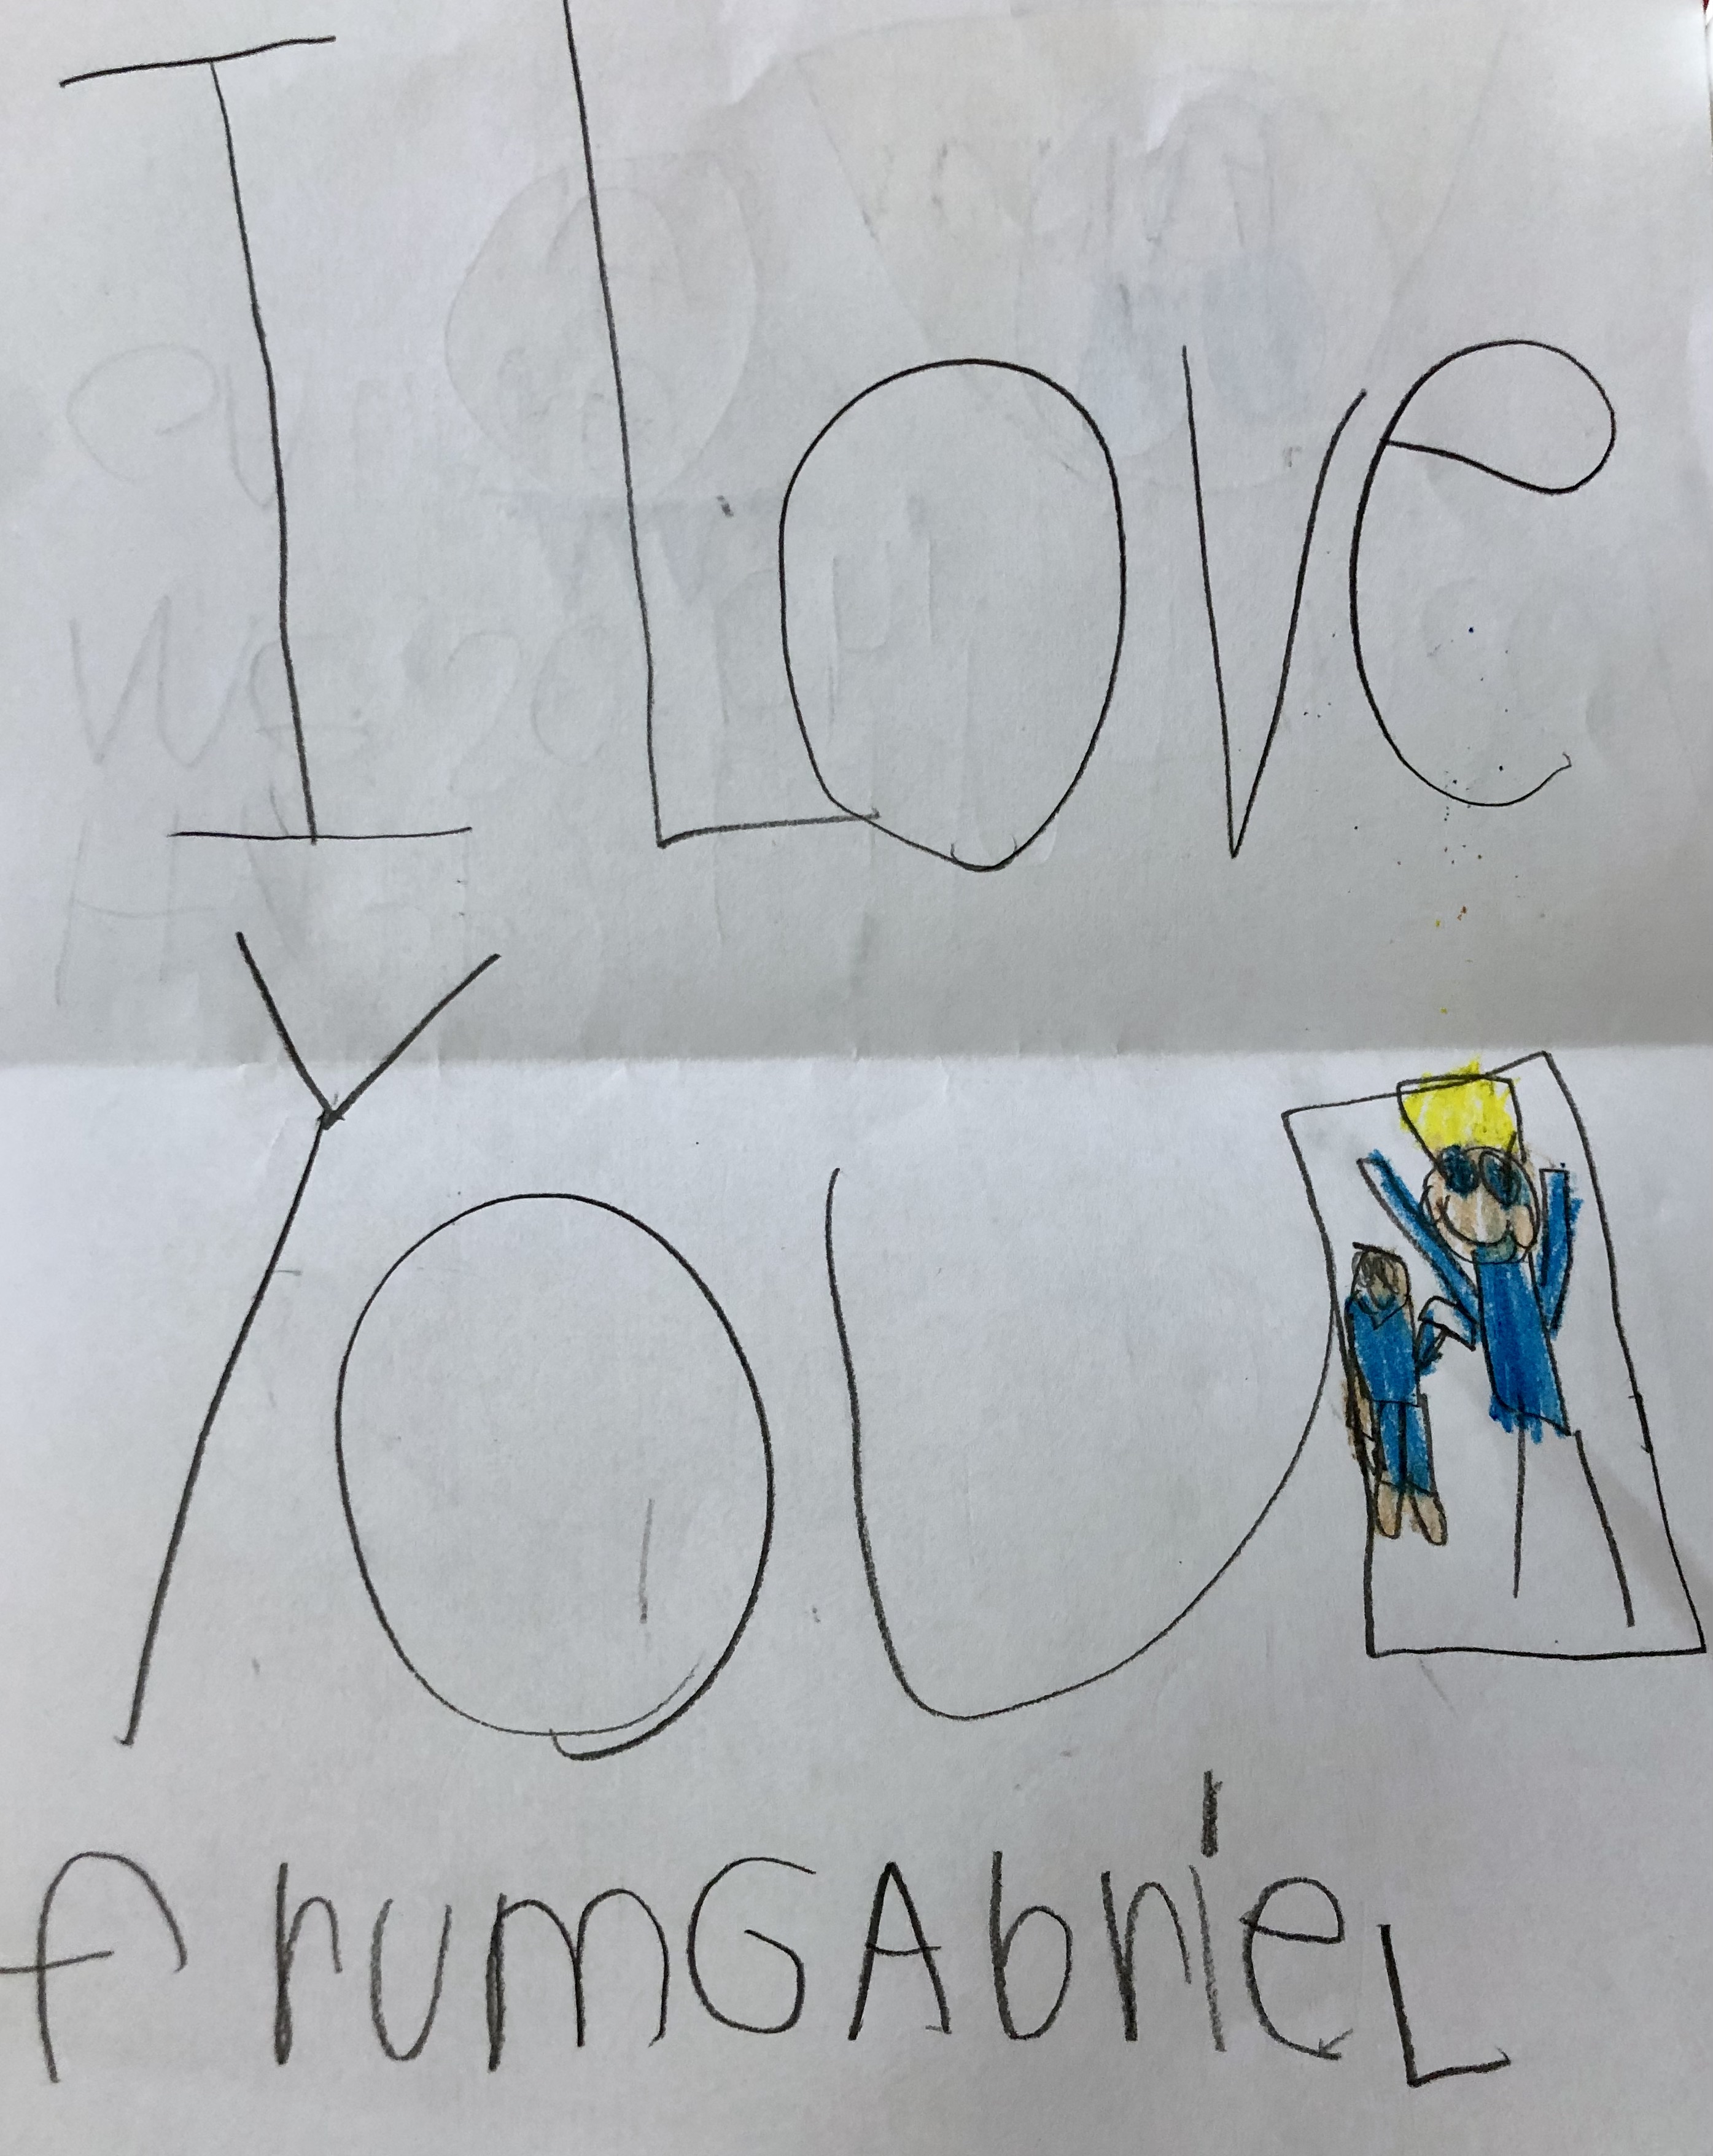 I Love
YOU
frumGAbrieL